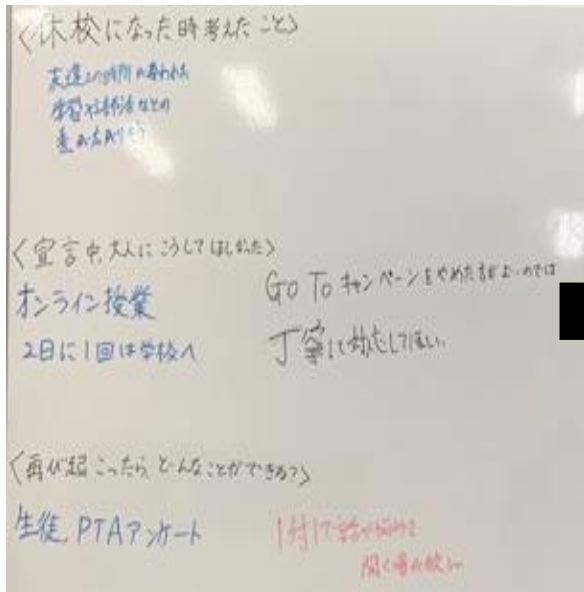 〈休校になった時考えたこと〉
友達との時間が奪われた
学習や部活などの
差が
〈宣言中、大人にこうしてほしかった〉
オンライン授業
2日に1回は学校へ
Go To キャンペーンをやめた方がよいのでは
丁寧に対応してほしい
〈再び起こったら、どんなことができる?〉
生徒、PTAアンケート
1対1で話や悩みを
聞く場が欲しい